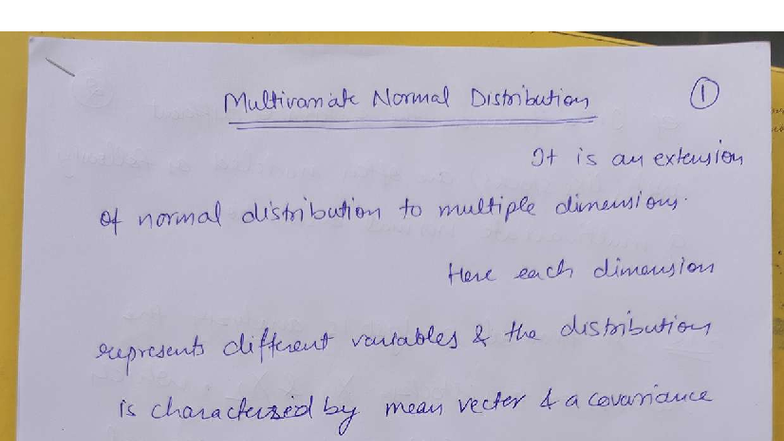 Multivariate Normal Distribution
①
It is an extension
of normal distribution to multiple dimensions.
Here each dimension
represents different variables & the distribution
is characterized by mean vector & a covariance